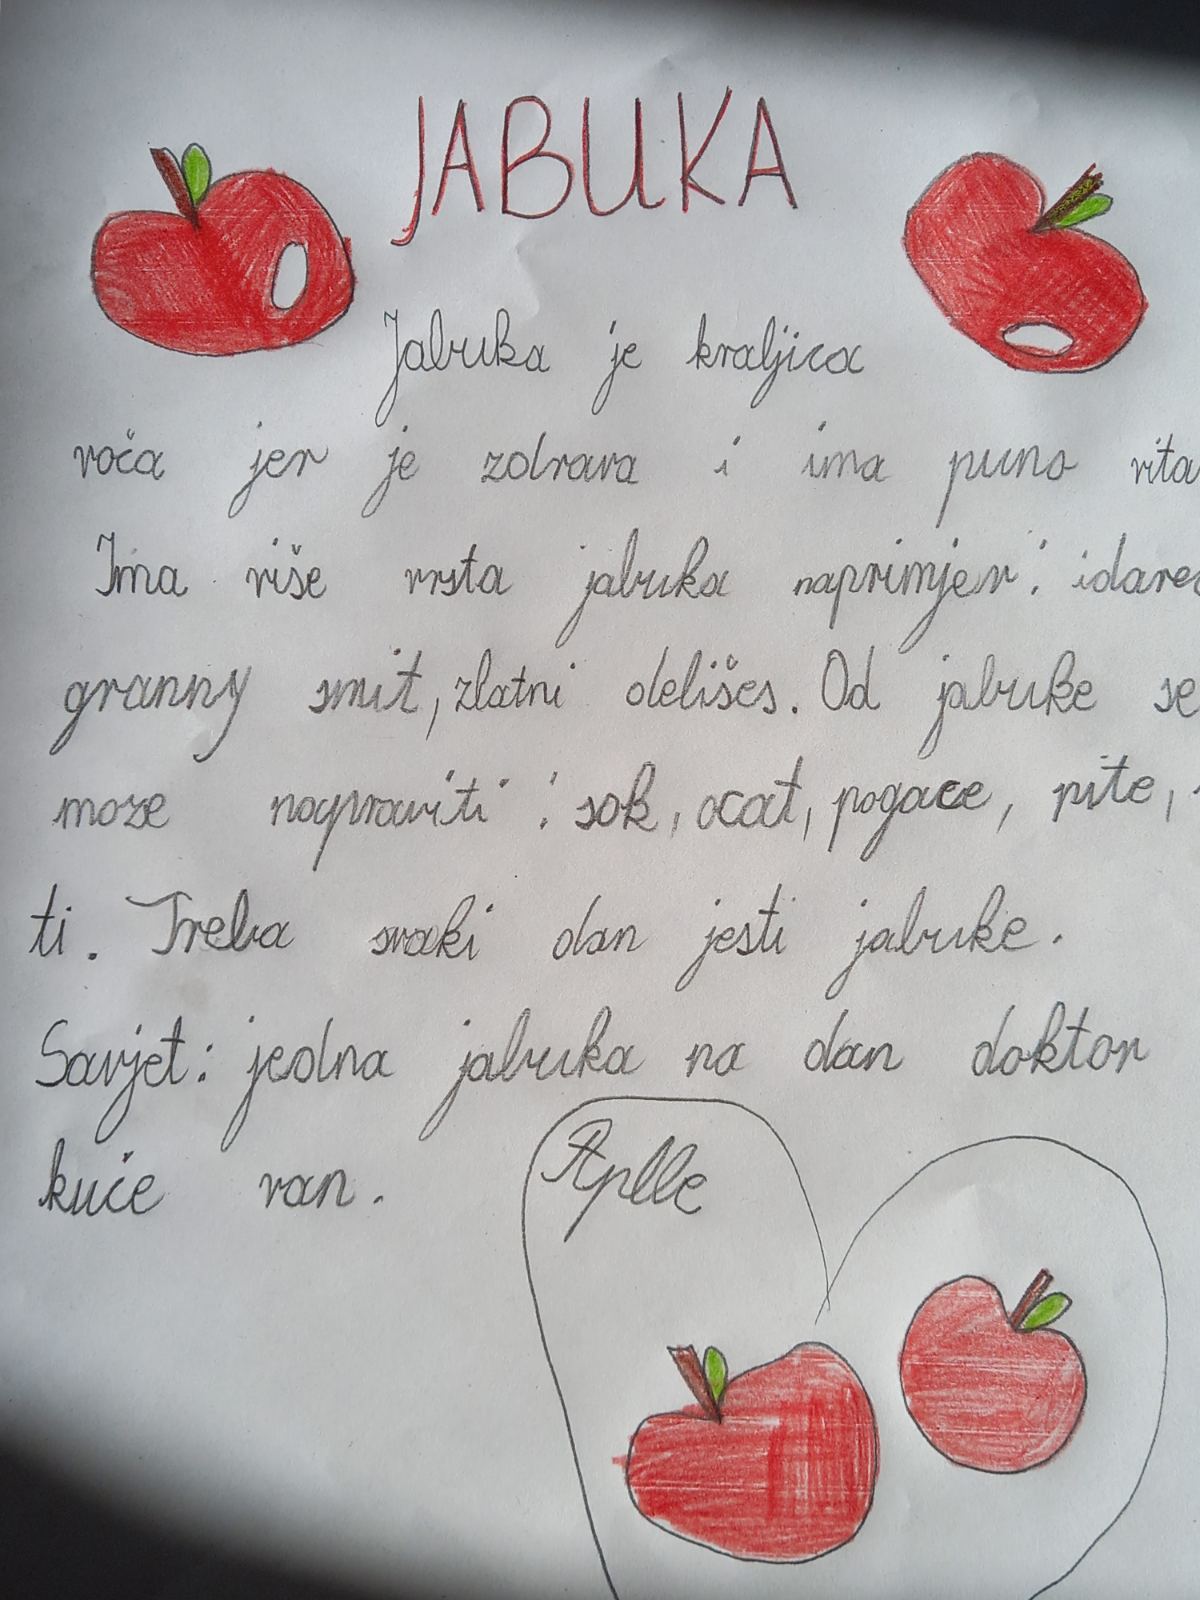 JABUKA
Jabuka je kraljica
voća jer je zdrava i ima puno vita
Ima više vrsta jabuka naprimjer: idared
granny smit, zlatni delišes. Od jabuke se
može napraviti: sok, ocat, pogače, pite,
ti. Treba svaki dan jesti jabuke.
Savjet: jedna jabuka na dan doktor
kuće van.
Aplle